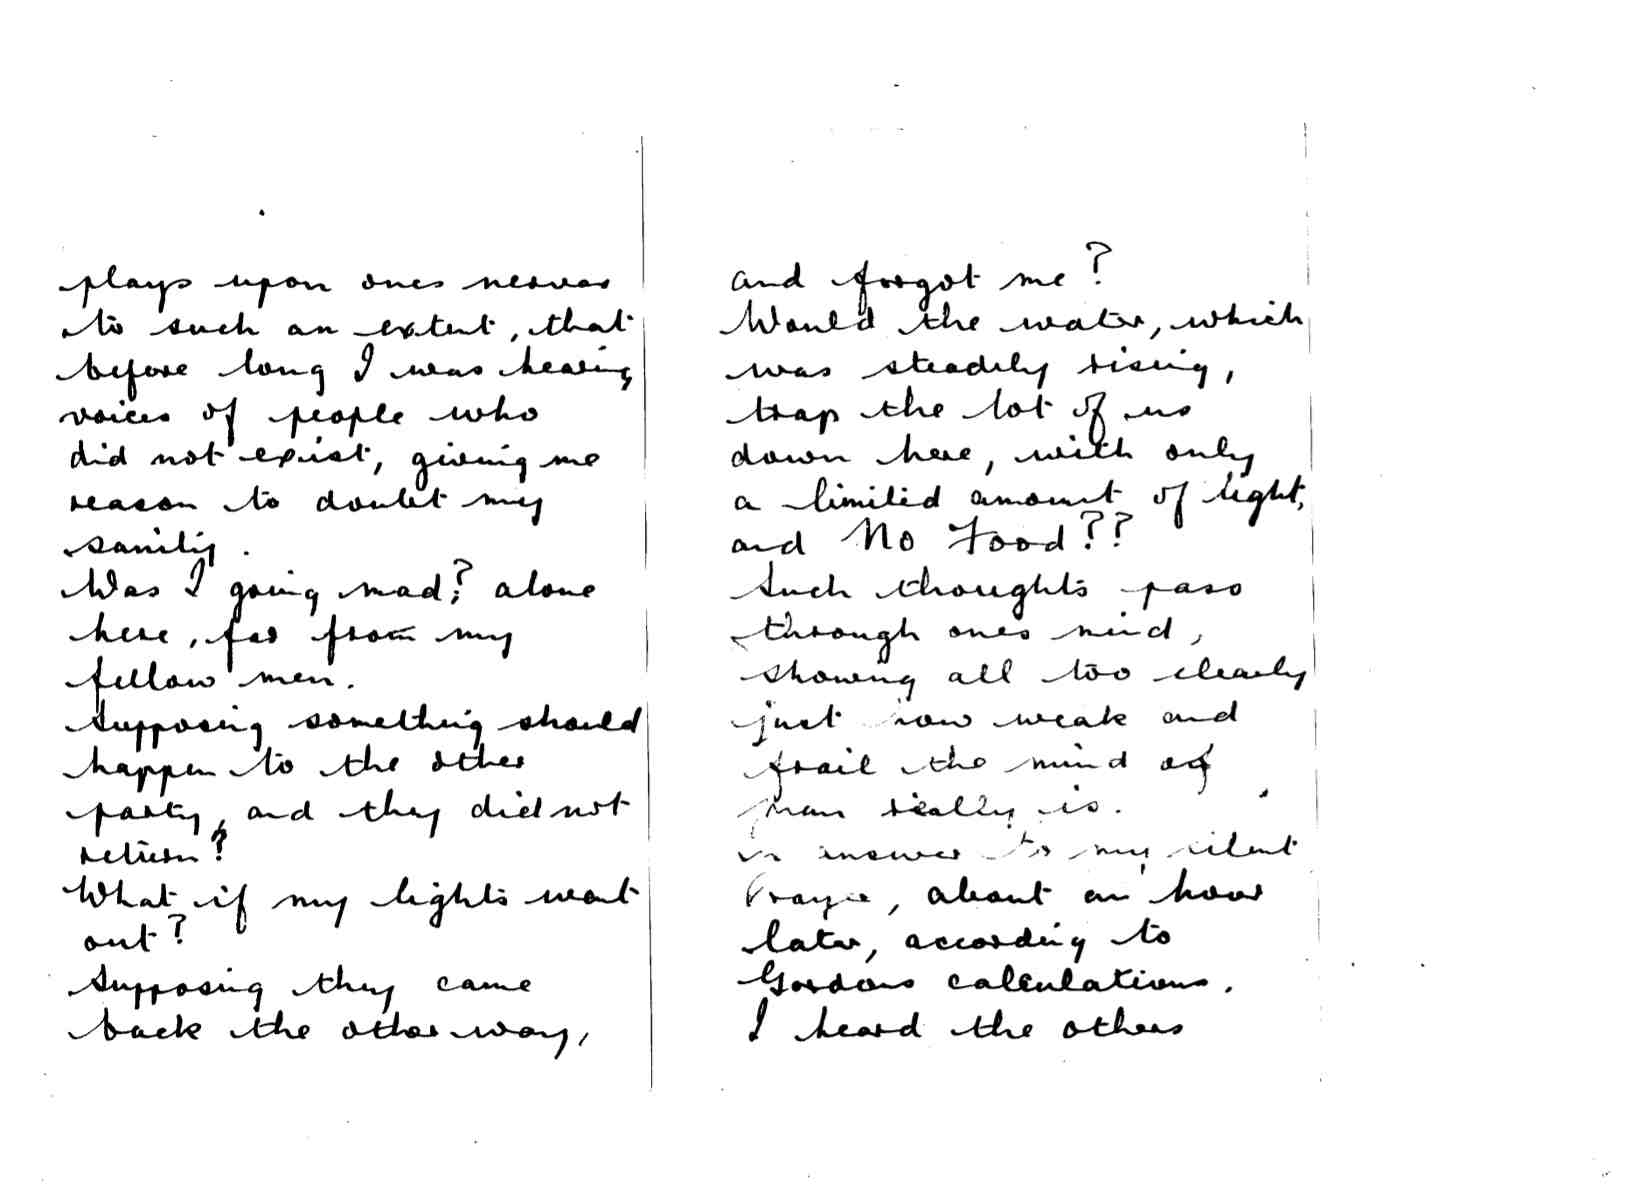 plays upon ones nerves
to such an extent, that
before long I was hearing
voices of people who
did not exist, giving me
reason to doubt my
sanity.
Was I going mad? alone
here, far from my
fellow men.
Supposing something should
happen to the other
party, and they did not
return?
What if my lights went
out?
Supposing they came
back the other way,
and forgot me?
Would the water, which
was steadily rising,
trap the lot of us
down here, with only
a limited amount of light,
and No Food??
Such thoughts pass
through ones mind,
showing all too clearly
just how weak and
frail the mind of
man really is.
in answer to my silent
Prayer, about an hour
later, according to
Gordons calculations.
I heard the others